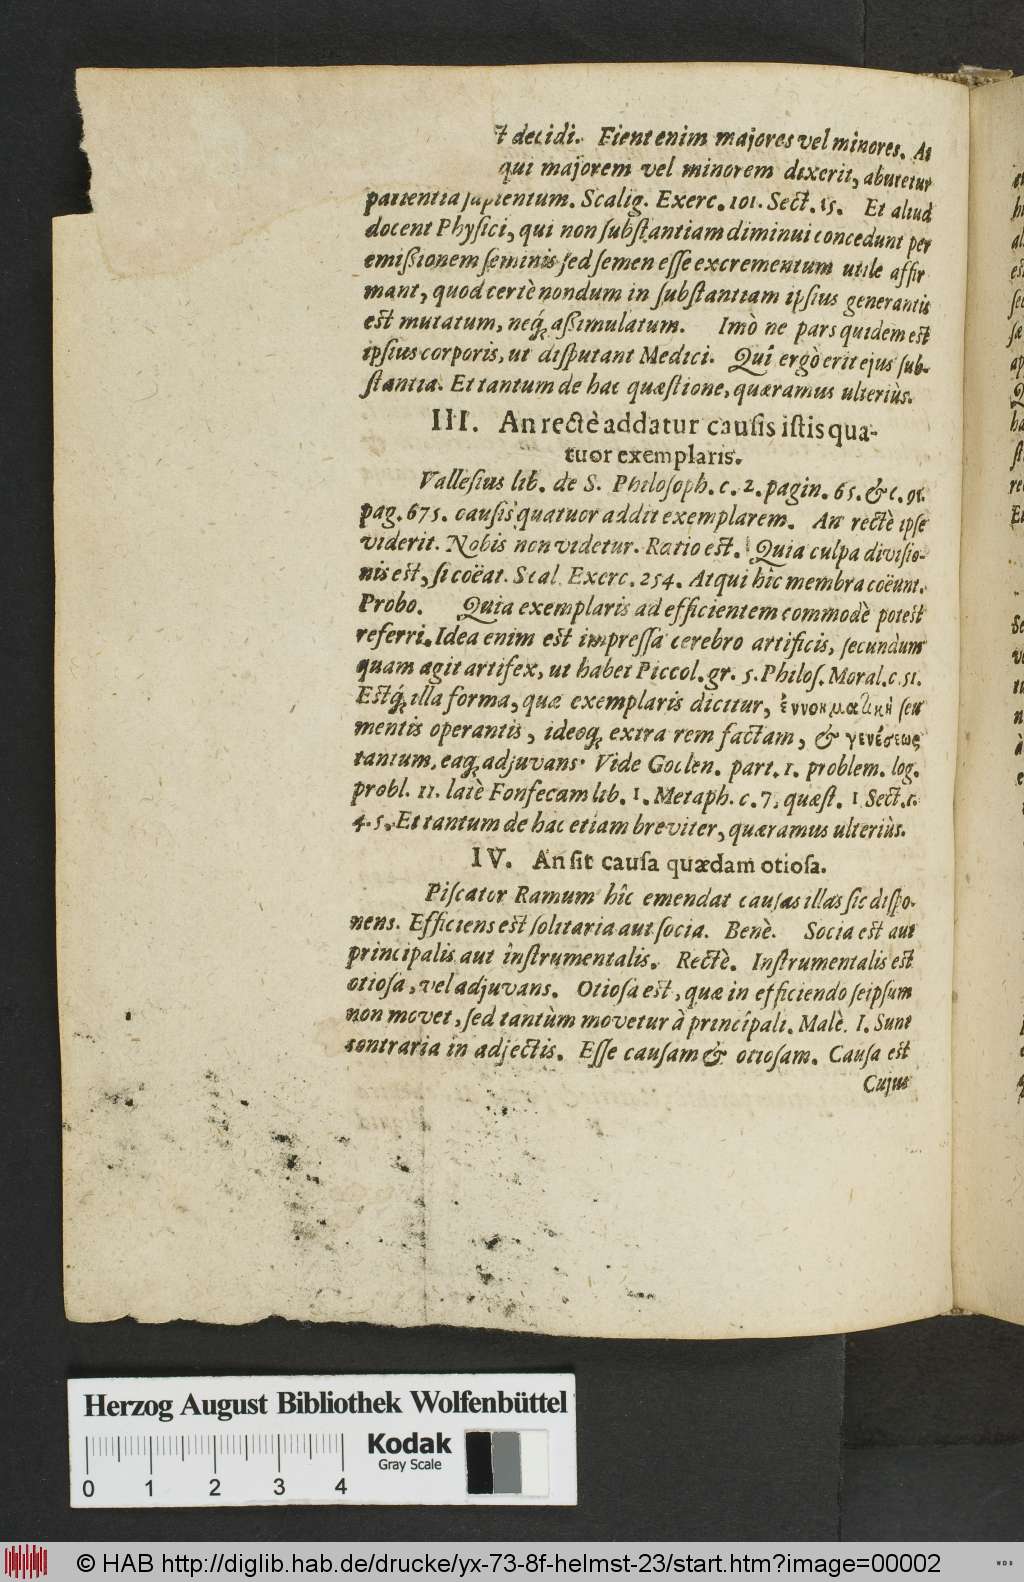 decidi. Fient enim majores vel minores. At
qui majorem vel minorem dixerit, abutetur
patientia sapientum. Scalig. Exerc. 101. Sect. 15. Et aliud
docent Physici, qui non substantiam diminui concedunt per
emißionem seminis sed semen esse excrementum utile affir
mant, quod certè nondum in substantiam ipsius generantis
est mutatum, neq́; aßimulatum. Imò ne pars quidem est
ipsius corporis, ut disputant Medici. Quî ergò erit ejus sub-
stantia. Et tantum de hac quæstione, quæramus ulteriùs.
III. An rectè addatur causis istis qua-
tuor exemplaris.
Vallesius lib. de S. Philosoph. c. 2. pagin. 65. & c. 91.
pag. 675. causis quatuor addit exemplarem. An rectè ipse
viderit. Nobis non videtur. Ratio est. Quia culpa divisio-
nis est, si coëat. Scal. Exerc. 254. Atqui hîc membra coëunt.
Probo. Quia exemplaris ad efficientem commodè potest
referri. Idea enim est impressa cerebro artificis, secundum
quam agit artifex, ut habet Piccol. gr. 5. Philos. Moral. c. 51.
Estq́; illa forma, quæ exemplaris dicitur, ἐννοηματικὴ seu
mentis operantis, ideoq; extra rem factam, & γενέσεως
tantum, eaq; adjuvans. Vide Goclen. part. 1. problem. log.
probl. 11. latè Fonsecam lib. 1. Metaph. c. 7. quæst. 1 Sect. 1.
4. 5. Et tantum de hac etiam breviter, quæramus ulteriùs.
IV. An sit causa quædam otiosa.
Piscator Ramum hîc emendat causas illas sic dispo-
nens. Efficiens est solitaria aut socia. Benè. Socia est aut
principalis aut instrumentalis. Rectè. Instrumentalis est
otiosa, vel adjuvans. Otiosa est, quæ in efficiendo seipsum
non movet, sed tantùm movetur à principali. Malè. I. Sunt
contraria in adjectis. Esse causam & otiosam. Causa est
Cujus
Herzog August Bibliothek Wolfenbüttel
Kodak
Gray Scale
0 1 2 3 4
© HAB http://diglib.hab.de/drucke/yx-73-8f-helmst-23/start.htm?image=00002